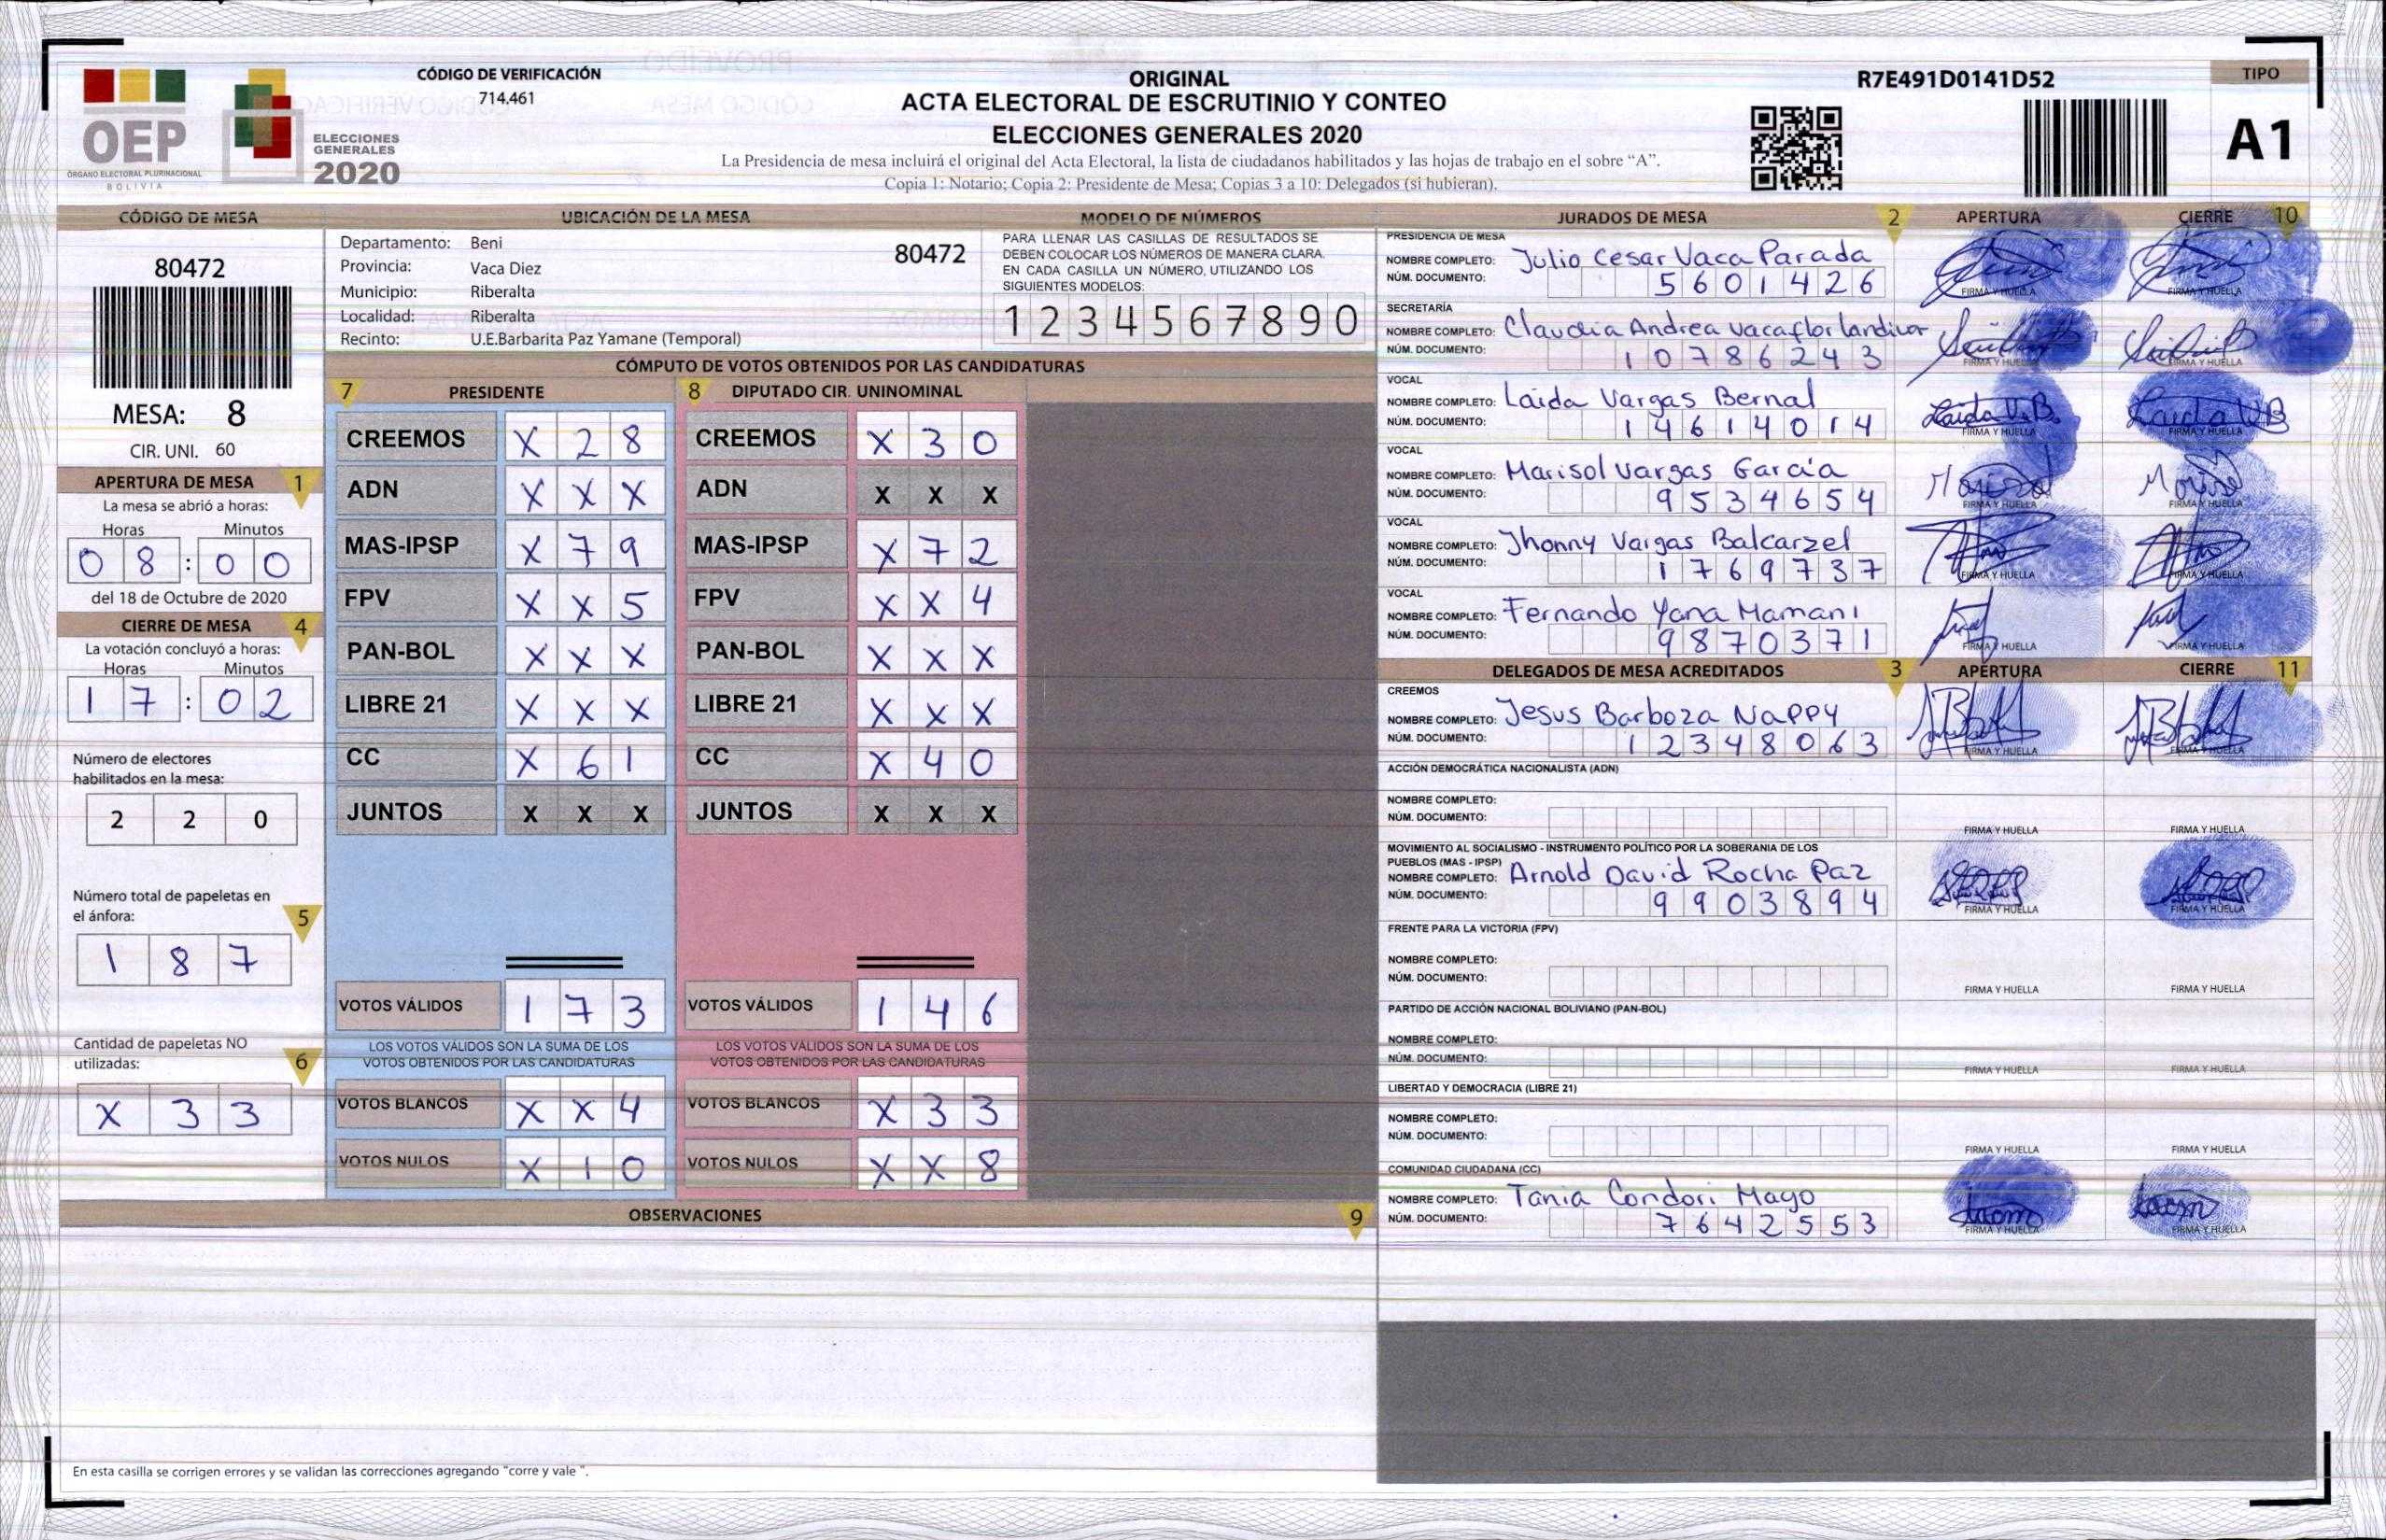 CÓDIGO DE VERIFICACIÓN
714.461
OEP
ÓRGANO ELECTORAL PLURINACIONAL
BOLIVIA
ELECCIONES
GENERALES
2020
ORIGINAL
ACTA ELECTORAL DE ESCRUTINIO Y CONTEO
ELECCIONES GENERALES 2020
La Presidencia de mesa incluirá el original del Acta Electoral, la lista de ciudadanos habilitados y las hojas de trabajo en el sobre “A”.
Copia 1: Notario; Copia 2: Presidente de Mesa; Copias 3 a 10: Delegados (si hubieran).
R7E491D0141D52
TIPO
A1
CÓDIGO DE MESA
80472
MESA: 8
CIR. UNI. 60
APERTURA DE MESA 1
La mesa se abrió a horas:
Horas Minutos
0 8 : 0 0
del 18 de Octubre de 2020
CIERRE DE MESA 4
La votación concluyó a horas:
Horas Minutos
1 7 : 0 2
Número de electores
habilitados en la mesa:
2 2 0
Número total de papeletas en
el ánfora: 5
1 8 7
Cantidad de papeletas NO
utilizadas: 6
X 3 3
UBICACIÓN DE LA MESA
Departamento: Beni 80472
Provincia: Vaca Diez
Municipio: Riberalta
Localidad: Riberalta
Recinto: U.E.Barbarita Paz Yamane (Temporal)
MODELO DE NÚMEROS
PARA LLENAR LAS CASILLAS DE RESULTADOS SE
DEBEN COLOCAR LOS NÚMEROS DE MANERA CLARA.
EN CADA CASILLA UN NÚMERO, UTILIZANDO LOS
SIGUIENTES MODELOS:
1 2 3 4 5 6 7 8 9 0
CÓMPUTO DE VOTOS OBTENIDOS POR LAS CANDIDATURAS
7 PRESIDENTE
CREEMOS X 2 8
ADN X X X
MAS-IPSP X 7 9
FPV X X 5
PAN-BOL X X X
LIBRE 21 X X X
CC X 6 1
JUNTOS X X X
VOTOS VÁLIDOS 1 7 3
LOS VOTOS VÁLIDOS SON LA SUMA DE LOS
VOTOS OBTENIDOS POR LAS CANDIDATURAS
VOTOS BLANCOS X X 4
VOTOS NULOS X 1 0
8 DIPUTADO CIR. UNINOMINAL
CREEMOS X 3 0
ADN X X X
MAS-IPSP X 7 2
FPV X X 4
PAN-BOL X X X
LIBRE 21 X X X
CC X 4 0
JUNTOS X X X
VOTOS VÁLIDOS 1 4 6
LOS VOTOS VÁLIDOS SON LA SUMA DE LOS
VOTOS OBTENIDOS POR LAS CANDIDATURAS
VOTOS BLANCOS X 3 3
VOTOS NULOS X X 8
OBSERVACIONES 9
En esta casilla se corrigen errores y se validan las correcciones agregando "corre y vale ".
JURADOS DE MESA 2 APERTURA CIERRE 10
PRESIDENCIA DE MESA
NOMBRE COMPLETO: Julio Cesar Vaca Parada
NÚM. DOCUMENTO: 5601426
FIRMA Y HUELLA FIRMA Y HUELLA
SECRETARÍA
NOMBRE COMPLETO: Claudia Andrea Vacaflor landivar
NÚM. DOCUMENTO: 10786243
FIRMA Y HUELLA FIRMA Y HUELLA
VOCAL
NOMBRE COMPLETO: Laida Vargas Bernal
NÚM. DOCUMENTO: 14614014
FIRMA Y HUELLA FIRMA Y HUELLA
VOCAL
NOMBRE COMPLETO: Marisol Vargas García
NÚM. DOCUMENTO: 9534654
FIRMA Y HUELLA FIRMA Y HUELLA
VOCAL
NOMBRE COMPLETO: Jhonny Vargas Balcarzel
NÚM. DOCUMENTO: 1769737
FIRMA Y HUELLA FIRMA Y HUELLA
VOCAL
NOMBRE COMPLETO: Fernando Yana Mamani
NÚM. DOCUMENTO: 9870371
FIRMA Y HUELLA FIRMA Y HUELLA
DELEGADOS DE MESA ACREDITADOS 3 APERTURA CIERRE 11
CREEMOS
NOMBRE COMPLETO: Jesus Barboza Nappy
NÚM. DOCUMENTO: 12348063
FIRMA Y HUELLA FIRMA Y HUELLA
ACCIÓN DEMOCRÁTICA NACIONALISTA (ADN)
NOMBRE COMPLETO:
NÚM. DOCUMENTO:
FIRMA Y HUELLA FIRMA Y HUELLA
MOVIMIENTO AL SOCIALISMO - INSTRUMENTO POLÍTICO POR LA SOBERANIA DE LOS
PUEBLOS (MAS - IPSP)
NOMBRE COMPLETO: Arnold David Rocha Paz
NÚM. DOCUMENTO: 9903894
FIRMA Y HUELLA FIRMA Y HUELLA
FRENTE PARA LA VICTORIA (FPV)
NOMBRE COMPLETO:
NÚM. DOCUMENTO:
FIRMA Y HUELLA FIRMA Y HUELLA
PARTIDO DE ACCIÓN NACIONAL BOLIVIANO (PAN-BOL)
NOMBRE COMPLETO:
NÚM. DOCUMENTO:
FIRMA Y HUELLA FIRMA Y HUELLA
LIBERTAD Y DEMOCRACIA (LIBRE 21)
NOMBRE COMPLETO:
NÚM. DOCUMENTO:
FIRMA Y HUELLA FIRMA Y HUELLA
COMUNIDAD CIUDADANA (CC)
NOMBRE COMPLETO: Tania Condori Mayo
NÚM. DOCUMENTO: 7642553
FIRMA Y HUELLA FIRMA Y HUELLA